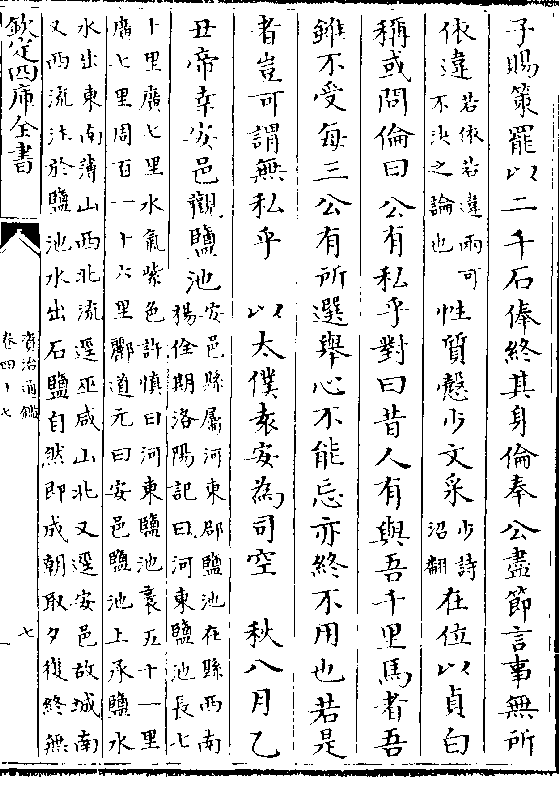 子賜策罷以二千石俸終其身倫奉公盡節言事無所
依違若依若違兩可不決之論也性質慤少文采少詩沼翻在位以貞白
稱或問倫曰公有私乎對曰昔人有與吾千里馬者吾
雖不受每三公有所選舉心不能忘亦終不用也若是
者豈可謂無私乎　以太僕袁安為司空　秋八月乙
丑帝幸安邑觀鹽池安邑縣屬河東郡鹽池在縣西南楊佺期洛陽記曰河東鹽池長七
十里廣七里水氣紫色許慎曰河東鹽池袤五十一里
廣七里周百一十六里酈道元曰安邑鹽池上承鹽水
水出東南薄山西北流逕巫咸山北又逕安邑故城南
又西流注於鹽池水出石鹽自然印成朝取夕復終無
欽定四庫全書
資治通鑑
卷四十七
七